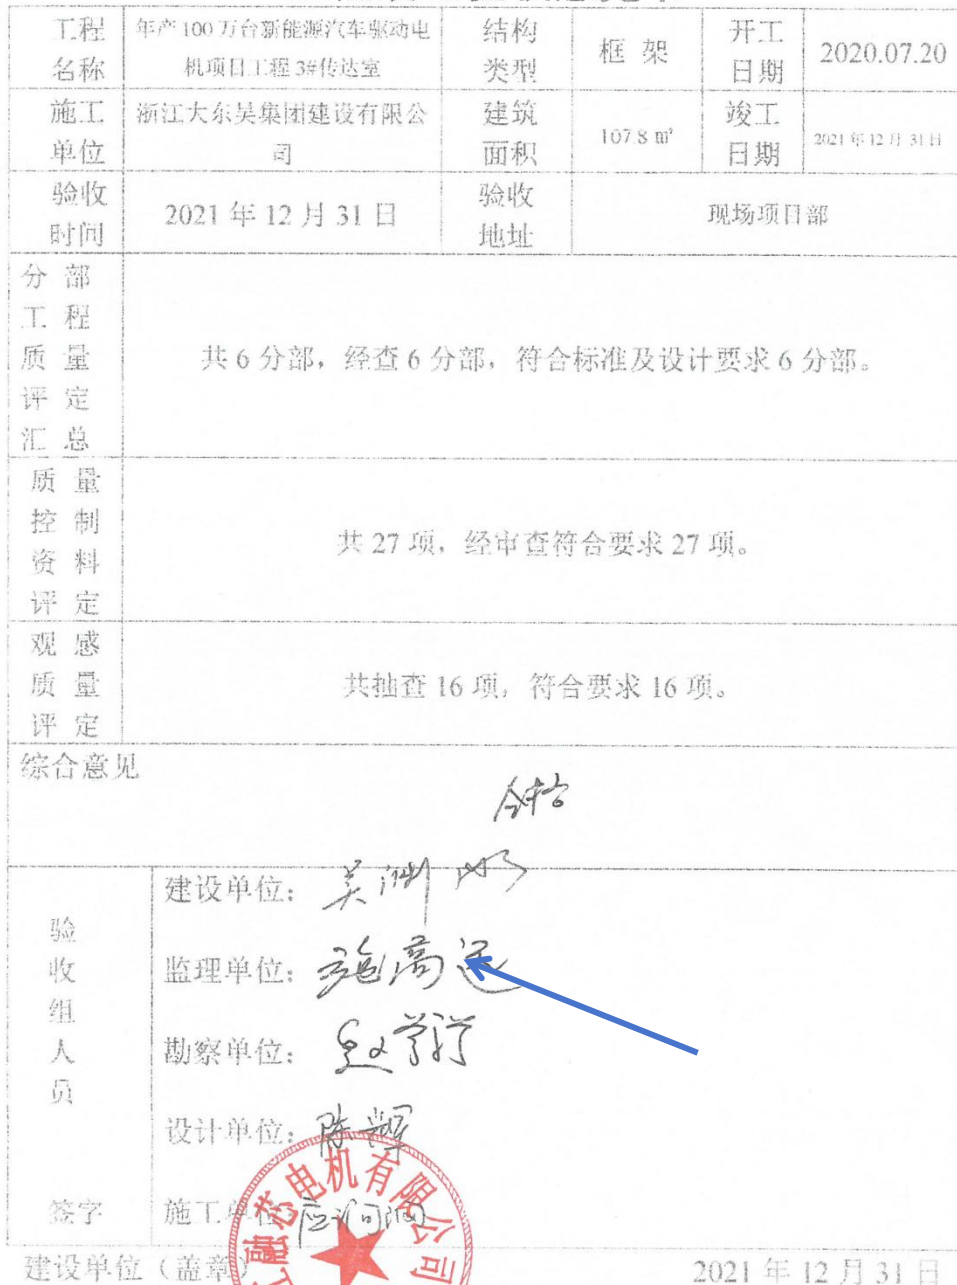 工程名称
年产100万台新能源汽车驱动电机项目工程3#传达室
结构类型
框 架
开工日期
2020.07.20
施工单位
浙江大东吴集团建设有限公司
建筑面积
107.8 ㎡
竣工日期
2021年12月31日
验收时间
2021 年 12 月 31 日
验收地址
现场项目部
分部工程质量评定汇总
共 6 分部，经查 6 分部，符合标准及设计要求 6 分部。
质量控制资料评定
共 27 项，经审查符合要求 27 项。
观感质量评定
共抽查 16 项，符合要求 16 项。
综合意见
合格
验收组人员
签字
建设单位：
监理单位：施高远
勘察单位：
设计单位：陈辉
施工单位：
电机有限公司
建设单位（盖章）
2021 年 12 月 31 日